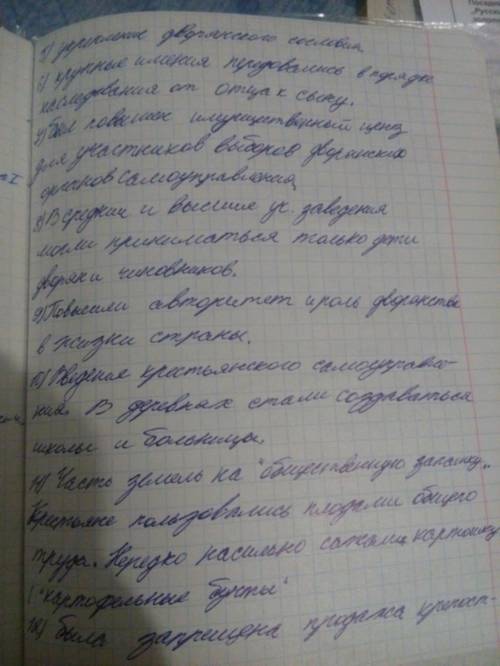 5) укрепление дворянского сословия
6) крупные имения передавались в порядке
наследования от отца к сыну.
7) был повышен имущественный ценз
для участников выборов дворянских
органов самоуправления
8) В средние и высшие уч. заведения
могли приниматься только дети
дворян и чиновников.
9) Повысили авторитет и роль дворянства
в жизни страны.
10) Введение крестьянского самоуправле-
ния. В деревнях стали создаваться
школы и больницы.
11) Часть земель на "общественную запашку"
Крестьяне пользовались плодами общего
труда. Нередко насильно сажали картошку
( "картофельные бунты"
12) была запрещена продажа крепост-
Посадк
"Русски